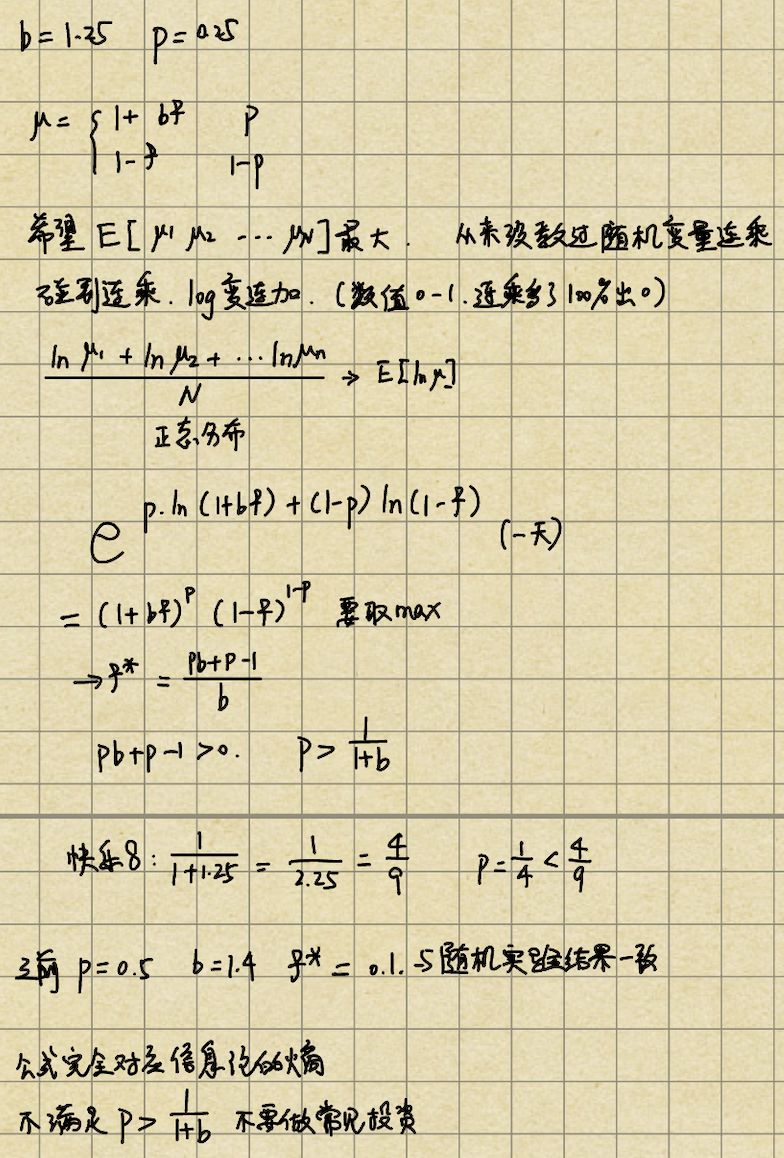 b = 1.25 p = 0.25
μ = { 1 + bf p
1 - f 1 - p
希望 E[ μ1 μ2 ... μN ] 最大. 从来没教过随机变量连乘
碰到连乘. log变连加. (数值 0-1. 连乘多了100%出0)
(ln μ1 + ln μ2 + ... ln μn) / N → E[ln μ]
正态分布
e^(p·ln(1+bf) + (1-p) ln(1-f)) (一天)
= (1+bf)^p (1-f)^(1-p) 要取max
→ f* = (pb+p-1) / b
pb+p-1 > 0. p > 1/(1+b)
快乐8: 1/(1+1.25) = 1/2.25 = 4/9 p = 1/4 < 4/9
之前 p = 0.5 b = 1.4 f* = 0.1. 与随机实验结果一致
公式完全对应信息论的熵
不满足 p > 1/(1+b) 不要做常见投资